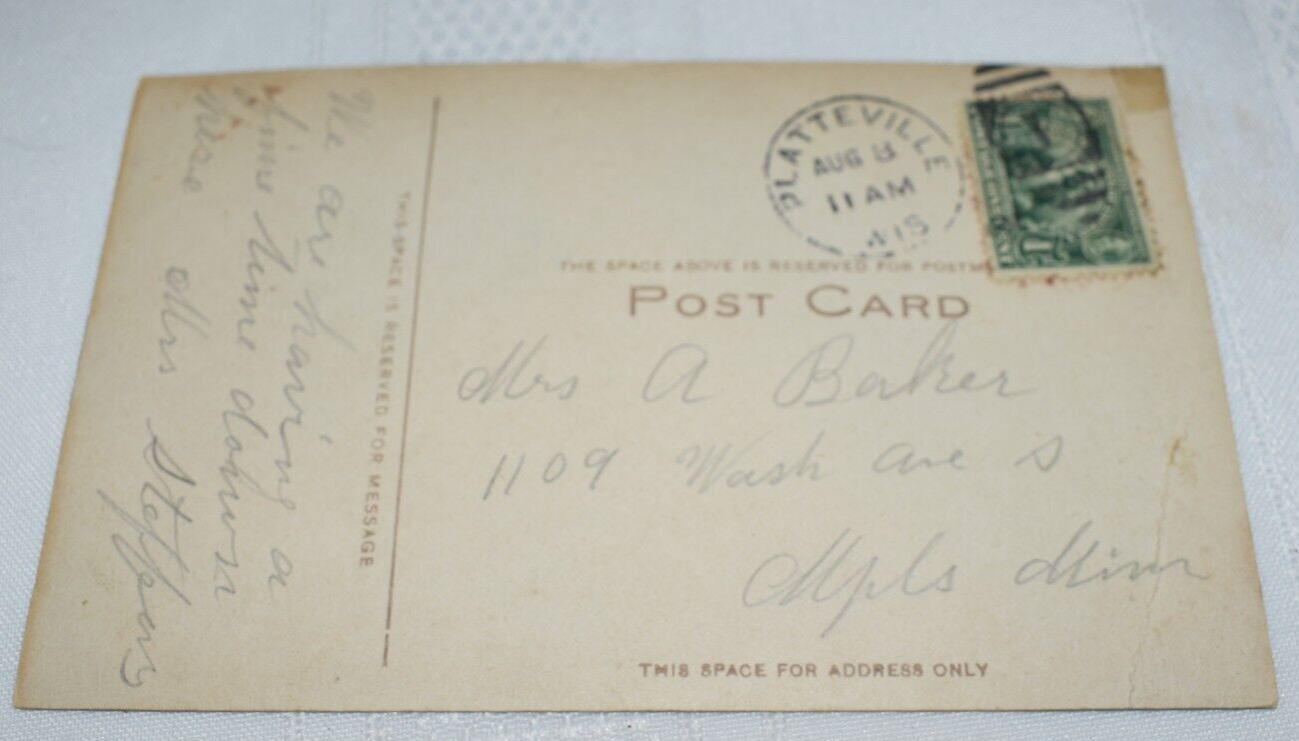 We are having a
fine time down
here Mrs Steffens
THIS SPACE IS RESERVED FOR MESSAGE
PLATTEVILLE
AUG 13
11 AM
WIS
THE SPACE ABOVE IS RESERVED FOR
POST CARD
Mrs A Baker
1109 Wash ave S
Mpls Minn
THIS SPACE FOR ADDRESS ONLY